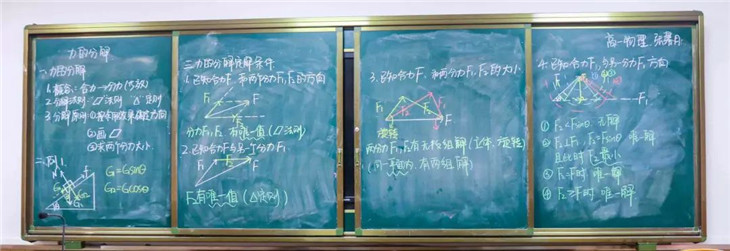 力的分解
一、力的分解
1. 概念：合力→分力(等效)
2. 分解法则 ▱法则 △定则
3. 分解原则 ①按实际效果确定方向
②画▱
③求两个分力大小
二、例1
G₁=Gsinθ
G₂=Gcosθ
三、力的分解的解条件
1. 已知合力F和两分力F₁F₂的方向
F₁ F
F₂
分力F₁、F₂有唯一值(▱法则)
2. 已知合力F与某一个分力F₁
F₁ F
F₂有唯一值(△定则)
3. 已知合力F和两分力F₁F₂的大小
F₁ F₂
F
旋转
两分力F₁、F₂有无数组解(立体、旋转)
(同一平面内,有两组解)
高一物理
4. 已知合力F、F₂与另一分力F₁方向
F
F₁
① F₂<Fsinθ 无解
② F₂⊥F₁ F₂=Fsinθ 唯一解
且此时F₂最小
③ F₂=F时 唯一解
④ F₂≥F时 唯一解